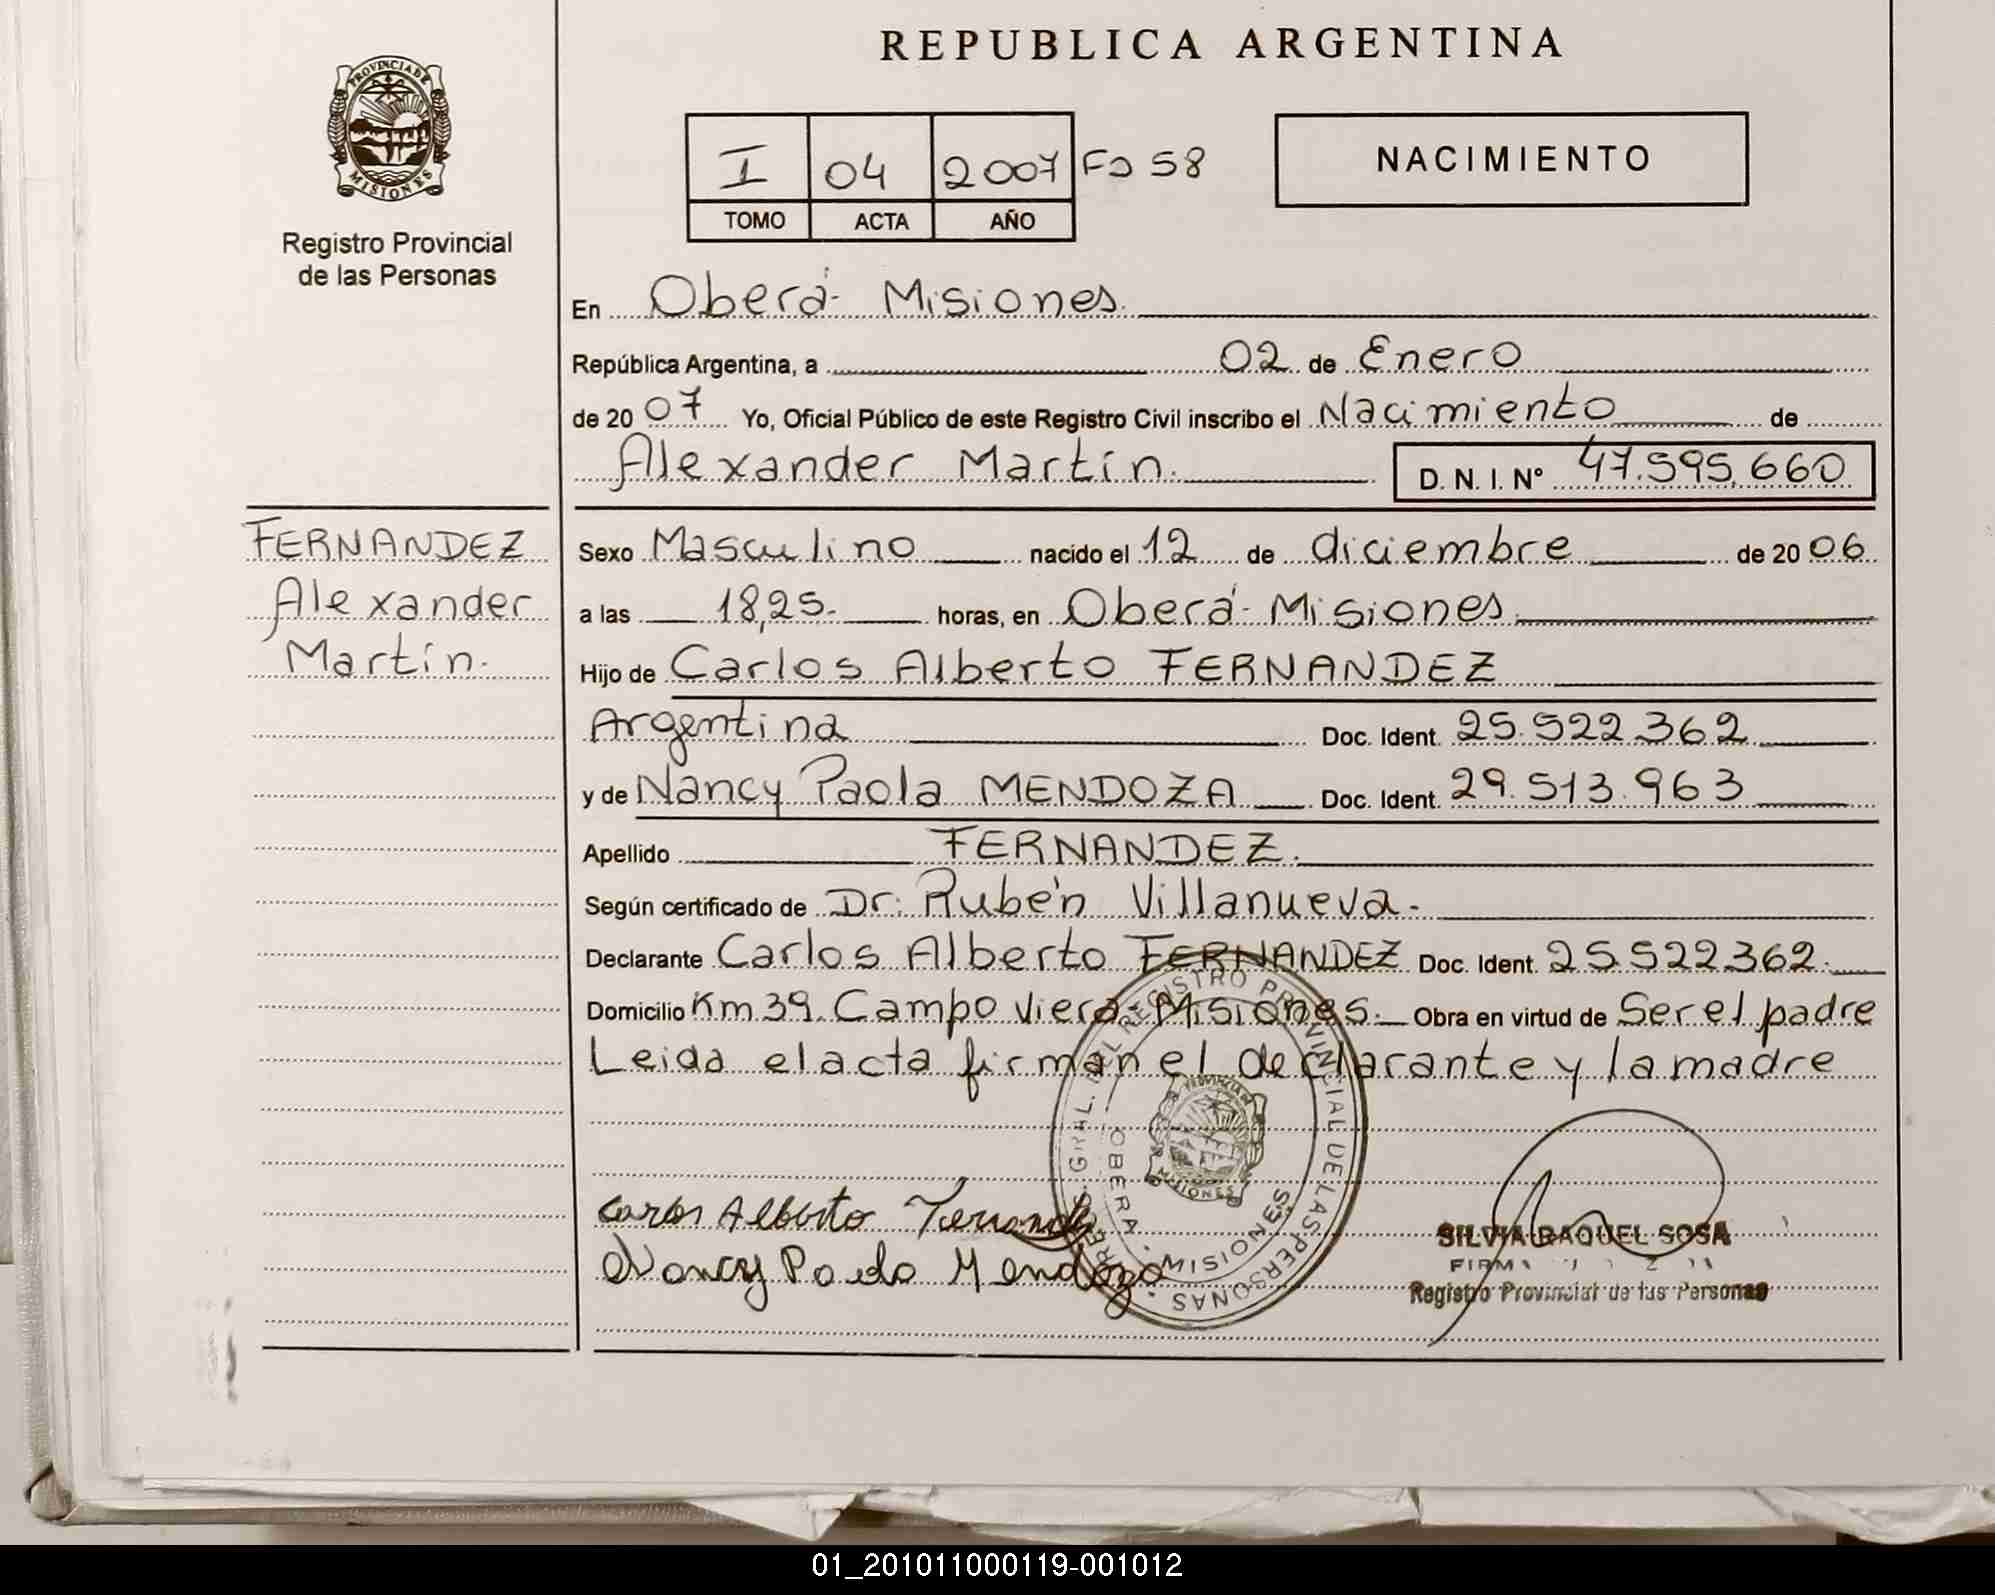 REPUBLICA ARGENTINA
PROVINCIA DE
MISIONES
Registro Provincial
de las Personas
I 04 2007 Fo 58
TOMO ACTA AÑO
NACIMIENTO
En Oberá - Misiones.
República Argentina, a 02 de Enero
de 2007 Yo, Oficial Público de este Registro Civil inscribo el Nacimiento de
Alexander Martín. D. N. I. Nº 47.595.660
FERNANDEZ
Alexander
Martín.
Sexo Masculino nacido el 12 de diciembre de 2006
a las 18,25. horas, en Oberá - Misiones.
Hijo de Carlos Alberto FERNANDEZ
Argentina Doc. Ident. 25.522.362
y de Nancy Paola MENDOZA Doc. Ident. 29.513.963
Apellido FERNANDEZ.
Según certificado de Dr. Rubén Villanueva.
Declarante Carlos Alberto FERNANDEZ Doc. Ident. 25.522.362.
Domicilio Km 39. Campo Viera - Misiones. Obra en virtud de Ser el padre
Leida el acta firman el declarante y la madre
GRAL. DEL REGISTRO PROVINCIAL DE LAS PERSONAS
OBERA - MISIONES
PROVINCIA
MISIONES
Carlos Alberto Fernandez
Nancy Paola Mendoza
SILVIA RAQUEL SOSA
Registro Provincial de las Personas
01_201011000119-001012